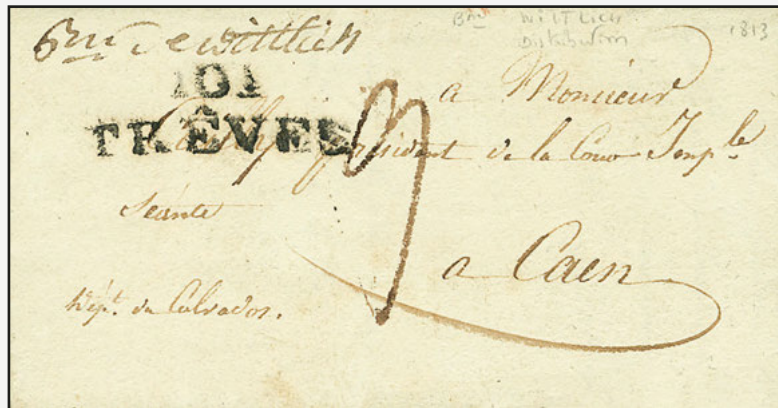 Bau de wittlich
Bau Wittlich
Distribution
1813
101
TRÊVES
a Monsieur
président de la Cour Imp.le
Séante
a Caen
Dépt. du Calvados.